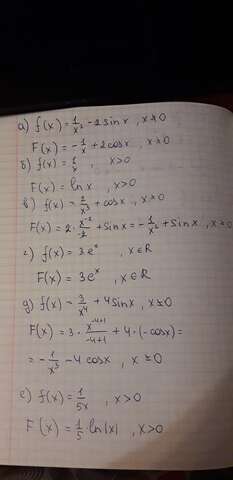 а) f(x) = 1/x² - 2 sin x, x ≠ 0
F(x) = -1/x + 2cosx, x ≠ 0
б) f(x) = 1/x, x > 0
F(x) = ln x, x > 0
в) f(x) = 2/x³ + cosx, x ≠ 0
F(x) = 2 · x⁻²/2 + Sinx = -1/x² + Sinx, x ≠ 0
г) f(x) = 3eˣ, x ∈ R
F(x) = 3eˣ, x ∈ R
д) f(x) = 3/x⁴ + 4Sinx, x ≠ 0
F(x) = 3 · x⁻⁴⁺¹/-4+1 + 4 · (-cosx) =
= -1/x³ - 4 cosx, x ≠ 0
е) f(x) = 1/5x, x > 0
F(x) = 1/5 ln|x|, x > 0